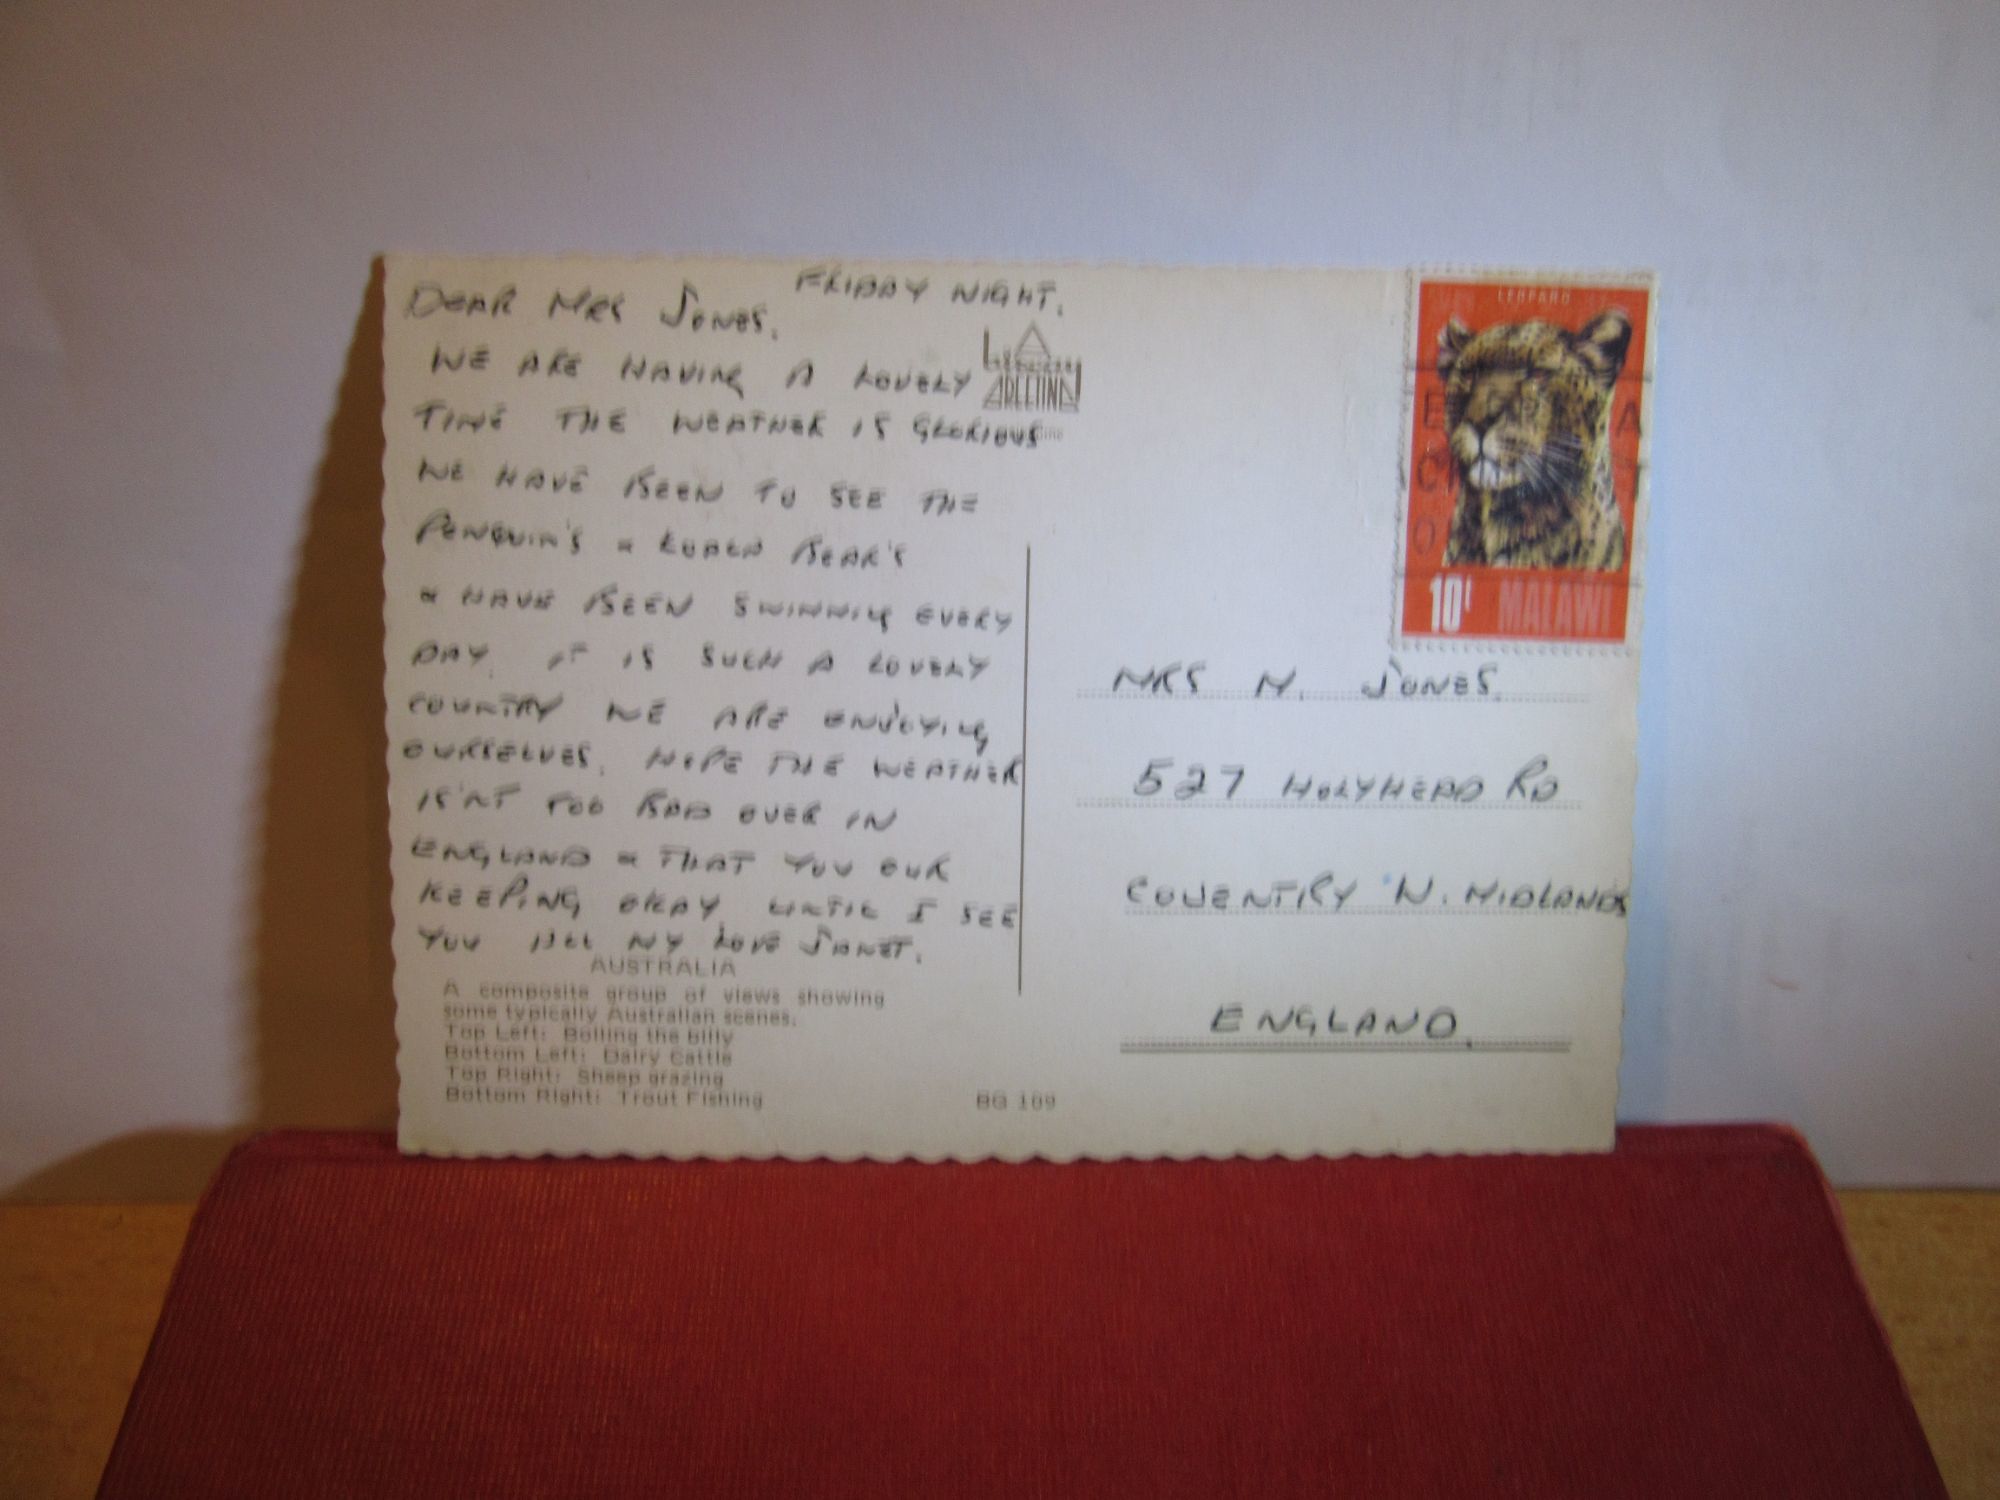 FRIDAY NIGHT.
DEAR MRS JONES.
WE ARE HAVING A LOVELY
TIME THE WEATHER IS GLORIOUS
WE HAVE BEEN TO SEE THE
PENGUIN'S & KOALA BEAR'S
& HAVE BEEN SWIMMING EVERY
DAY. IT IS SUCH A LOVELY
COUNTRY WE ARE ENJOYING
OURSELVES. HOPE THE WEATHER
IS'NT TOO BAD OVER IN
ENGLAND & THAT YOU OUR
KEEPING OKAY UNTIL I SEE
YOU ALL MY LOVE JANET.
AUSTRALIA
A composite group of views showing
some typically Australian scenes.
Top Left: Boiling the billy
Bottom Left: Dairy Cattle
Top Right: Sheep grazing
Bottom Right: Trout Fishing
BG 109
LEOPARD
10t MALAWI
MRS M. JONES.
527 HOLYHEAD RD
COVENTRY W. MIDLANDS
ENGLAND.